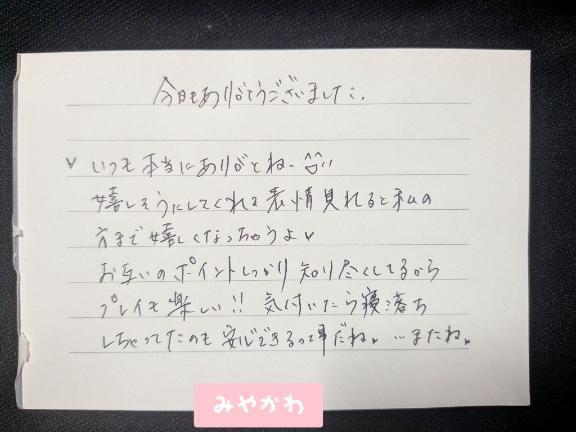 今日もありがとうございました.
♥ いつも本当にありがとね、^^;;
嬉しそうにしてくれる表情見れると私の
方まで嬉しくなっちゃうよ♥
お互いのポイントしっかり知り尽くしてるから
プレイも楽しい!! 気付いたら寝落ち
しちゃってたのも安心できるって事だね♥ …またね♥
みやかわ